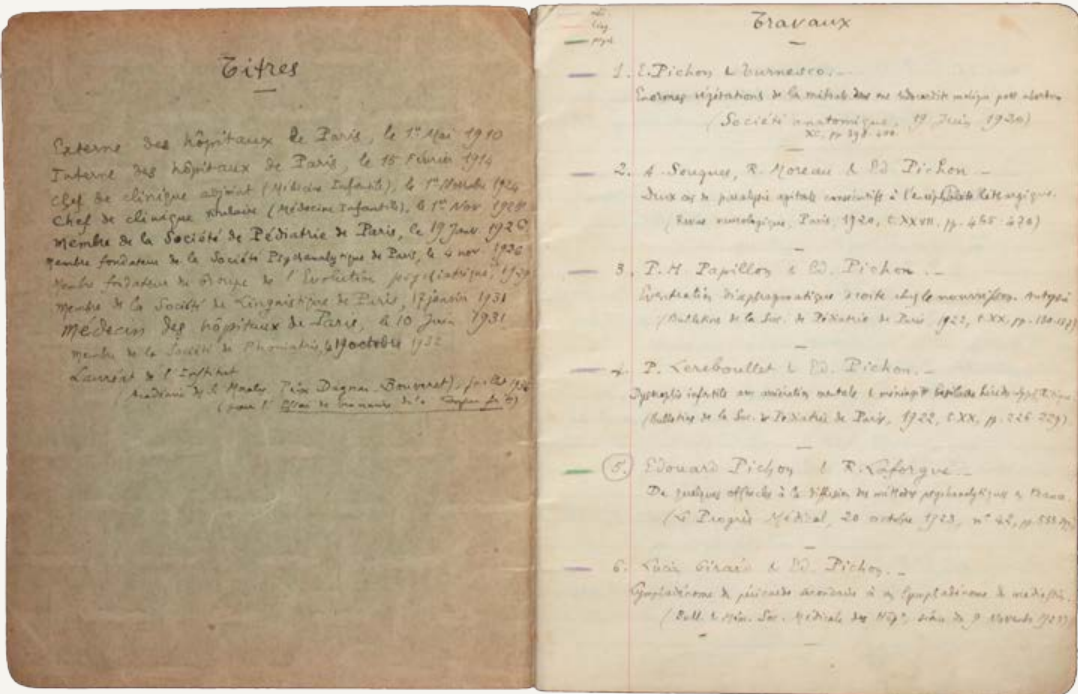 Titres
Externe des hôpitaux de Paris, le 1er Mai 1910
Interne des hôpitaux de Paris, le 15 Février 1914
Chef de clinique adjoint (Médecine Infantile), le 1er Novembre 1924
Chef de clinique titulaire (Médecine Infantile), le 1er Nov
Membre de la Société de Pédiatrie de Paris, le 19 Janv. 1926
Membre fondateur de la Société Psychanalytique de Paris, le 4 nov. 1926
Membre fondateur du Groupe de l'Evolution psychiatrique,
Membre de la Société de Linguistique de Paris, 17 janvier 1931
Médecin des hôpitaux de Paris, le 10 Juin 1931
Membre de la Société de Phoniatrie, 19 octobre 1932
Lauréat de l'Institut
(Académie des Sc. Morales, Prix Dagnan-Bouveret), juillet
(pour l'
Travaux
1. E. Pichon &
Enormes végétations de la mitrale dans une endocardite maligne post abortum
(Société anatomique, 19 Juin 1920)
2. A. Souques, R. Moreau & Ed. Pichon _
Deux cas de paralysie agitante consécutifs à l'encéphalite léthargique.
(Revue neurologique, Paris, 1920, t. XXVII, pp.
3. P. M. Papillon & Ed. Pichon. _
Eventration diaphragmatique droite chez le nourrisson. Autopsie
(Bulletins de la Soc. de Pédiatrie de Paris, 1922, t. XX, pp.
4. P. Lereboullet & Ed. Pichon. _
Dystrophie infantile avec & méningite basilaire
(Bulletins de la Soc. de Pédiatrie de Paris, 1922, t. XX, pp. 226-229).
5. Edouard Pichon & R. Laforgue _
De quelques obstacles à la diffusion des méthodes psychanalytiques en France.
(Le Progrès Médical, 20 octobre 1923, n° 42, pp.
6. Lucie Girard & Ed. Pichon. _
Lymphadénome du péricarde secondaire à un lymphadénome du médiastin.
(Bull. & Mém. Soc. Médicale des Hôp., séance du 9 Novembre 1923)